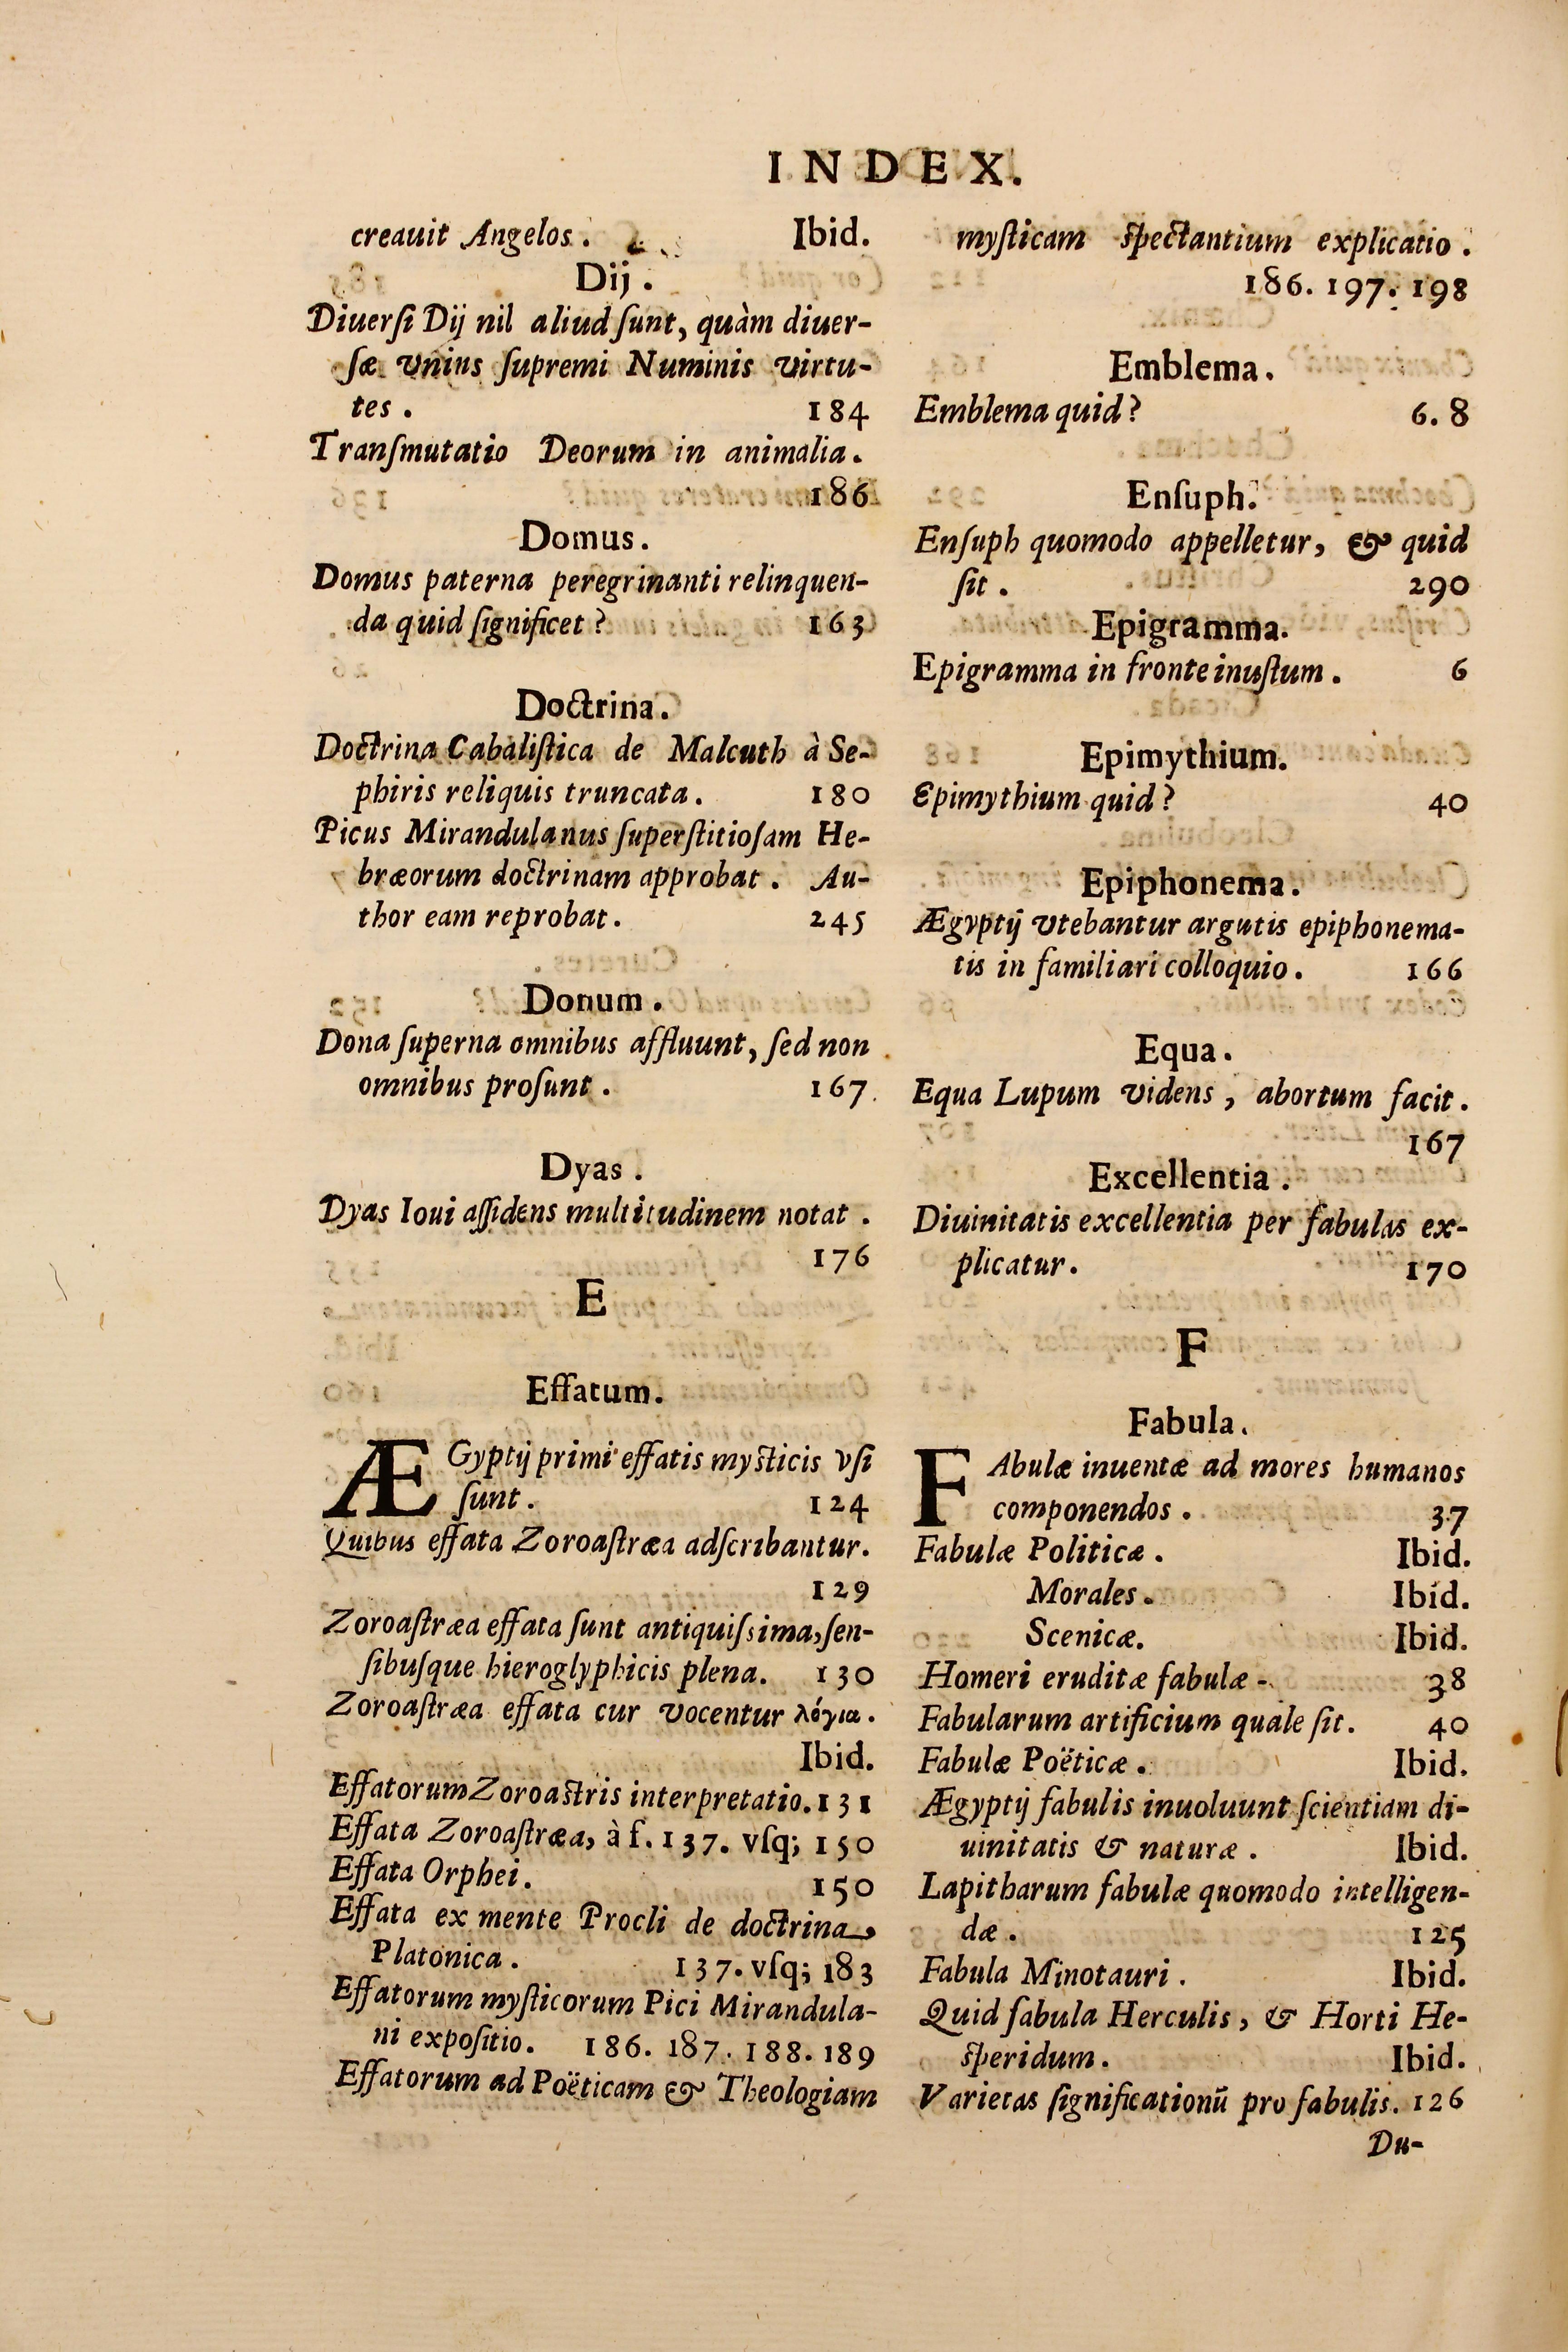 INDEX.
creauit Angelos. Ibid.
Dij.
Diuerſi Dij nil aliud ſunt, quàm diuer-
ſæ vnius ſupremi Numinis virtu-
tes. 184
Tranſmutatio Deorum in animalia.
186
Domus.
Domus paterna peregrinanti relinquen-
da quid ſignificet? 163
Doctrina.
Doctrina Cabaliſtica de Malcuth à Se-
phiris reliquis truncata. 180
Picus Mirandulanus ſuperſtitioſam He-
bræorum doctrinam approbat. Au-
thor eam reprobat. 245
Donum.
Dona ſuperna omnibus affluunt, ſed non
omnibus proſunt. 167
Dyas.
Dyas Ioui aſſidens multitudinem notat.
176
E
Effatum.
ÆGyptij primi effatis myſticis vſi
ſunt. 124
Quibus effata Zoroaſtræa adſcribantur.
129
Zoroaſtræa effata ſunt antiquiſsima, ſen-
ſibuſque hieroglyphicis plena. 130
Zoroaſtræa effata cur vocentur λόγια.
Ibid.
Effatorum Zoroaſtris interpretatio. 131
Effata Zoroaſtræa, à f. 137. vſq; 150
Effata Orphei. 150
Effata ex mente Procli de doctrina
Platonica. 137. vſq; 183
Effatorum myſticorum Pici Mirandula-
ni expoſitio. 186. 187. 188. 189
Effatorum ad Poëticam & Theologiam
myſticam ſpectantium explicatio.
186. 197. 198
Emblema.
Emblema quid? 6. 8
Enſuph.
Enſuph quomodo appelletur, & quid
ſit. 290
Epigramma.
Epigramma in fronte inuſtum. 6
Epimythium.
Epimythium quid? 40
Epiphonema.
Ægyptij vtebantur argutis epiphonema-
tis in familiari colloquio. 166
Equa.
Equa Lupum videns, abortum facit.
167
Excellentia.
Diuinitatis excellentia per fabulas ex-
plicatur. 170
F
Fabula.
FAbulæ inuentæ ad mores humanos
componendos. 37
Fabulæ Politicæ. Ibid.
Morales. Ibid.
Scenicæ. Ibid.
Homeri eruditæ fabulæ. 38
Fabularum artificium quale ſit. 40
Fabulæ Poëticæ. Ibid.
Ægyptij fabulis inuoluunt ſcientiam di-
uinitatis & naturæ. Ibid.
Lapitharum fabulæ quomodo intelligen-
dæ. 125
Fabula Minotauri. Ibid.
Quid fabula Herculis, & Horti He-
ſperidum. Ibid.
Varietas ſignificationū pro fabulis. 126
Du-